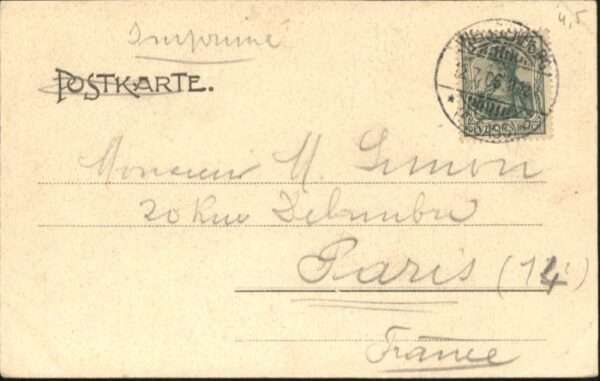 4,5
Imprimé
POSTKARTE.
Monsieur M. Simon
20 Rue Delambre
Paris (14)
France